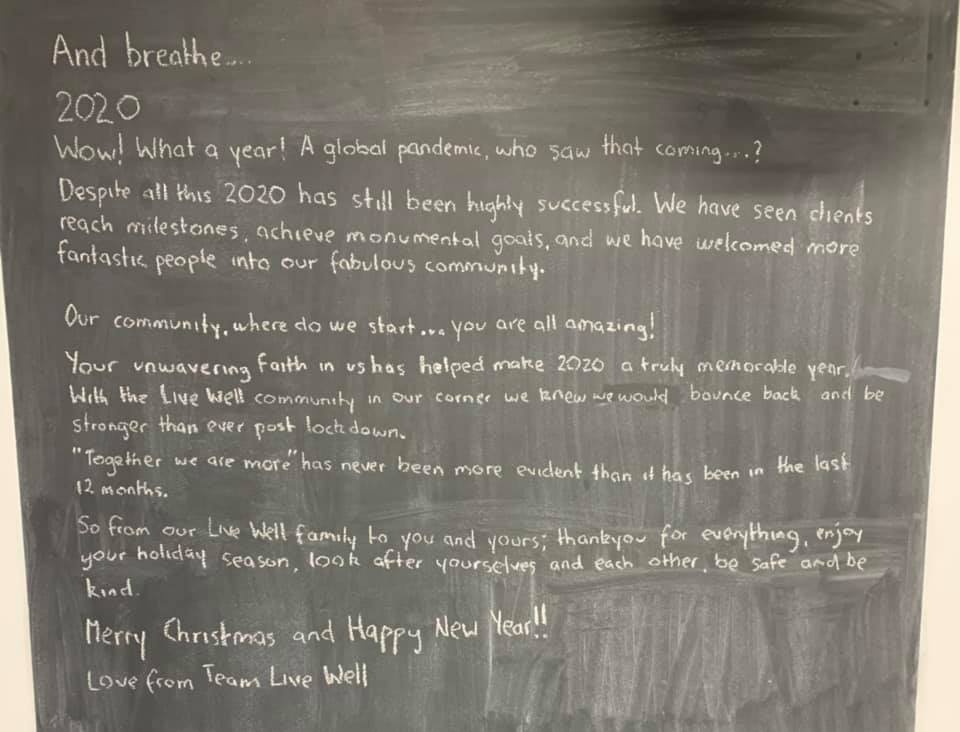 And breathe....
2020
Wow! What a year! A global pandemic, who saw that coming...?
Despite all this 2020 has still been highly successful. We have seen clients
reach milestones, achieve monumental goals, and we have welcomed more
fantastic people into our fabulous community.
Our community, where do we start... you are all amazing!
Your unwavering faith in us has helped make 2020 a truly memorable year.
With the Live Well community in our corner we knew we would bounce back and be
stronger than ever post lockdown.
"Together we are more" has never been more evident than it has been in the last
12 months.
So from our Live Well family to you and yours; thankyou for everything, enjoy
your holiday season, look after yourselves and each other, be safe and be
kind.
Merry Christmas and Happy New Year!!
Love from Team Live Well